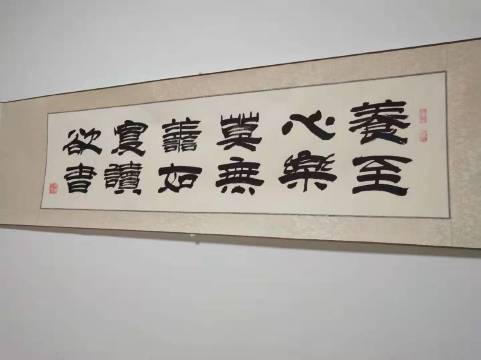 養心莫善寡欲
至樂無如讀書